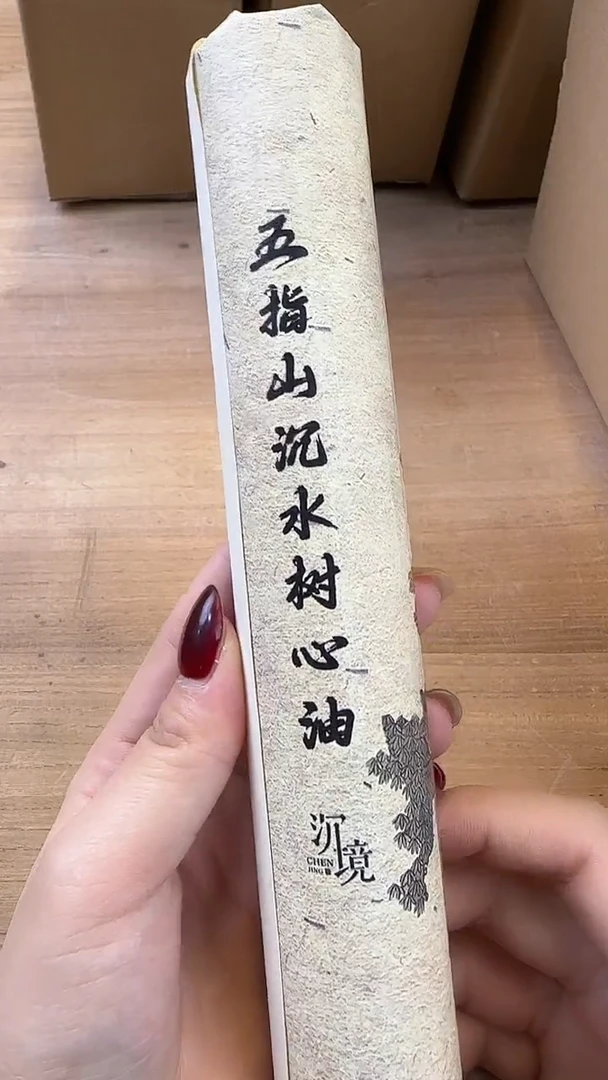 五指山沉水树心油
沉境
CHEN
JING